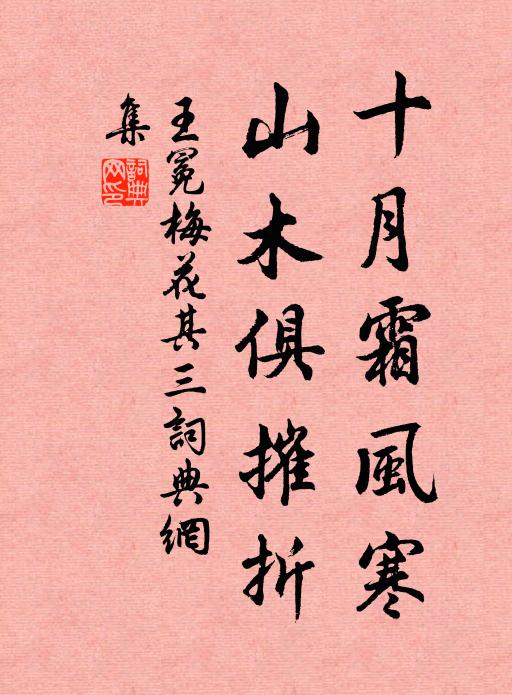 十月霜風寒
山木俱摧折
王冕梅花其三詞典網
集
詞典網印